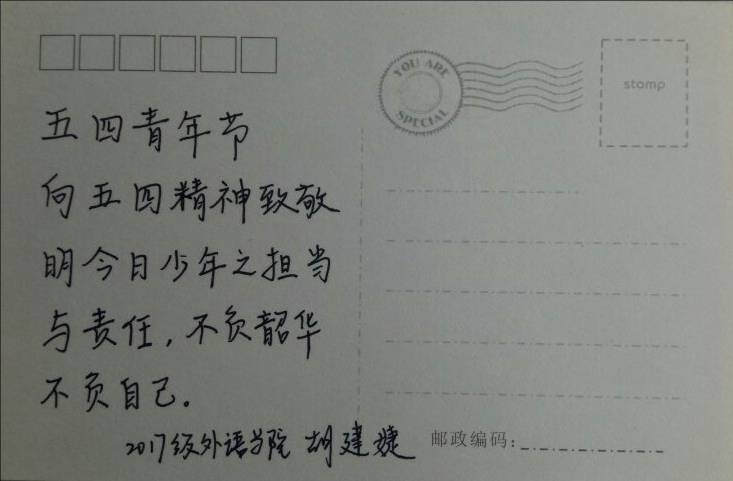 YOU ARE
SPECIAL
stamp
五四青年节
向五四精神致敬
明今日少年之担当
与责任，不负韶华
不负自己。
2017级外语学院 胡建婕
邮政编码：